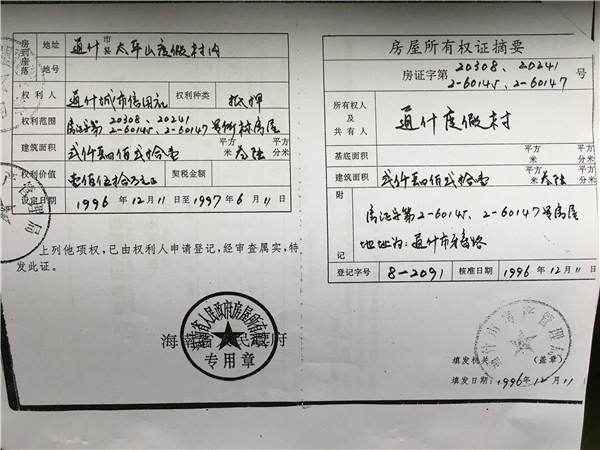 房屋座落
地址 通什市县太平山度假村内
地号
权利人 通什城市信用社 权利种类 抵押
权利范围 房证字第20308、20241
2-60145、2-60147号 房屋
建筑面积 贰仟 肆佰贰拾壹 平方米 叁陆 平方分米
权利价值 壹佰伍拾万元正 契税金额
设定日期 1996年12月11日至1997年6月11日
上列他项权,已由权利人申请登记,经审查属实,特
发此证。
海南省人民政府
海南省人民政府房屋所有权
专用章
房屋所有权证摘要
房证字第20308、20241
2-60145、2-60147号
所有权人及共有人 通什度假村
基底面积 平方米 平方分米
建筑面积 贰仟肆佰贰拾壹 平方米 叁陆 平方分米
附记
房证字第2-60145、2-60147号房屋
地址为:通什市 路
登记字号 8-2091 核准日期 1996年12月11日
填发机关 (盖章)
通什市房产管理局
填发日期:1996年12月11